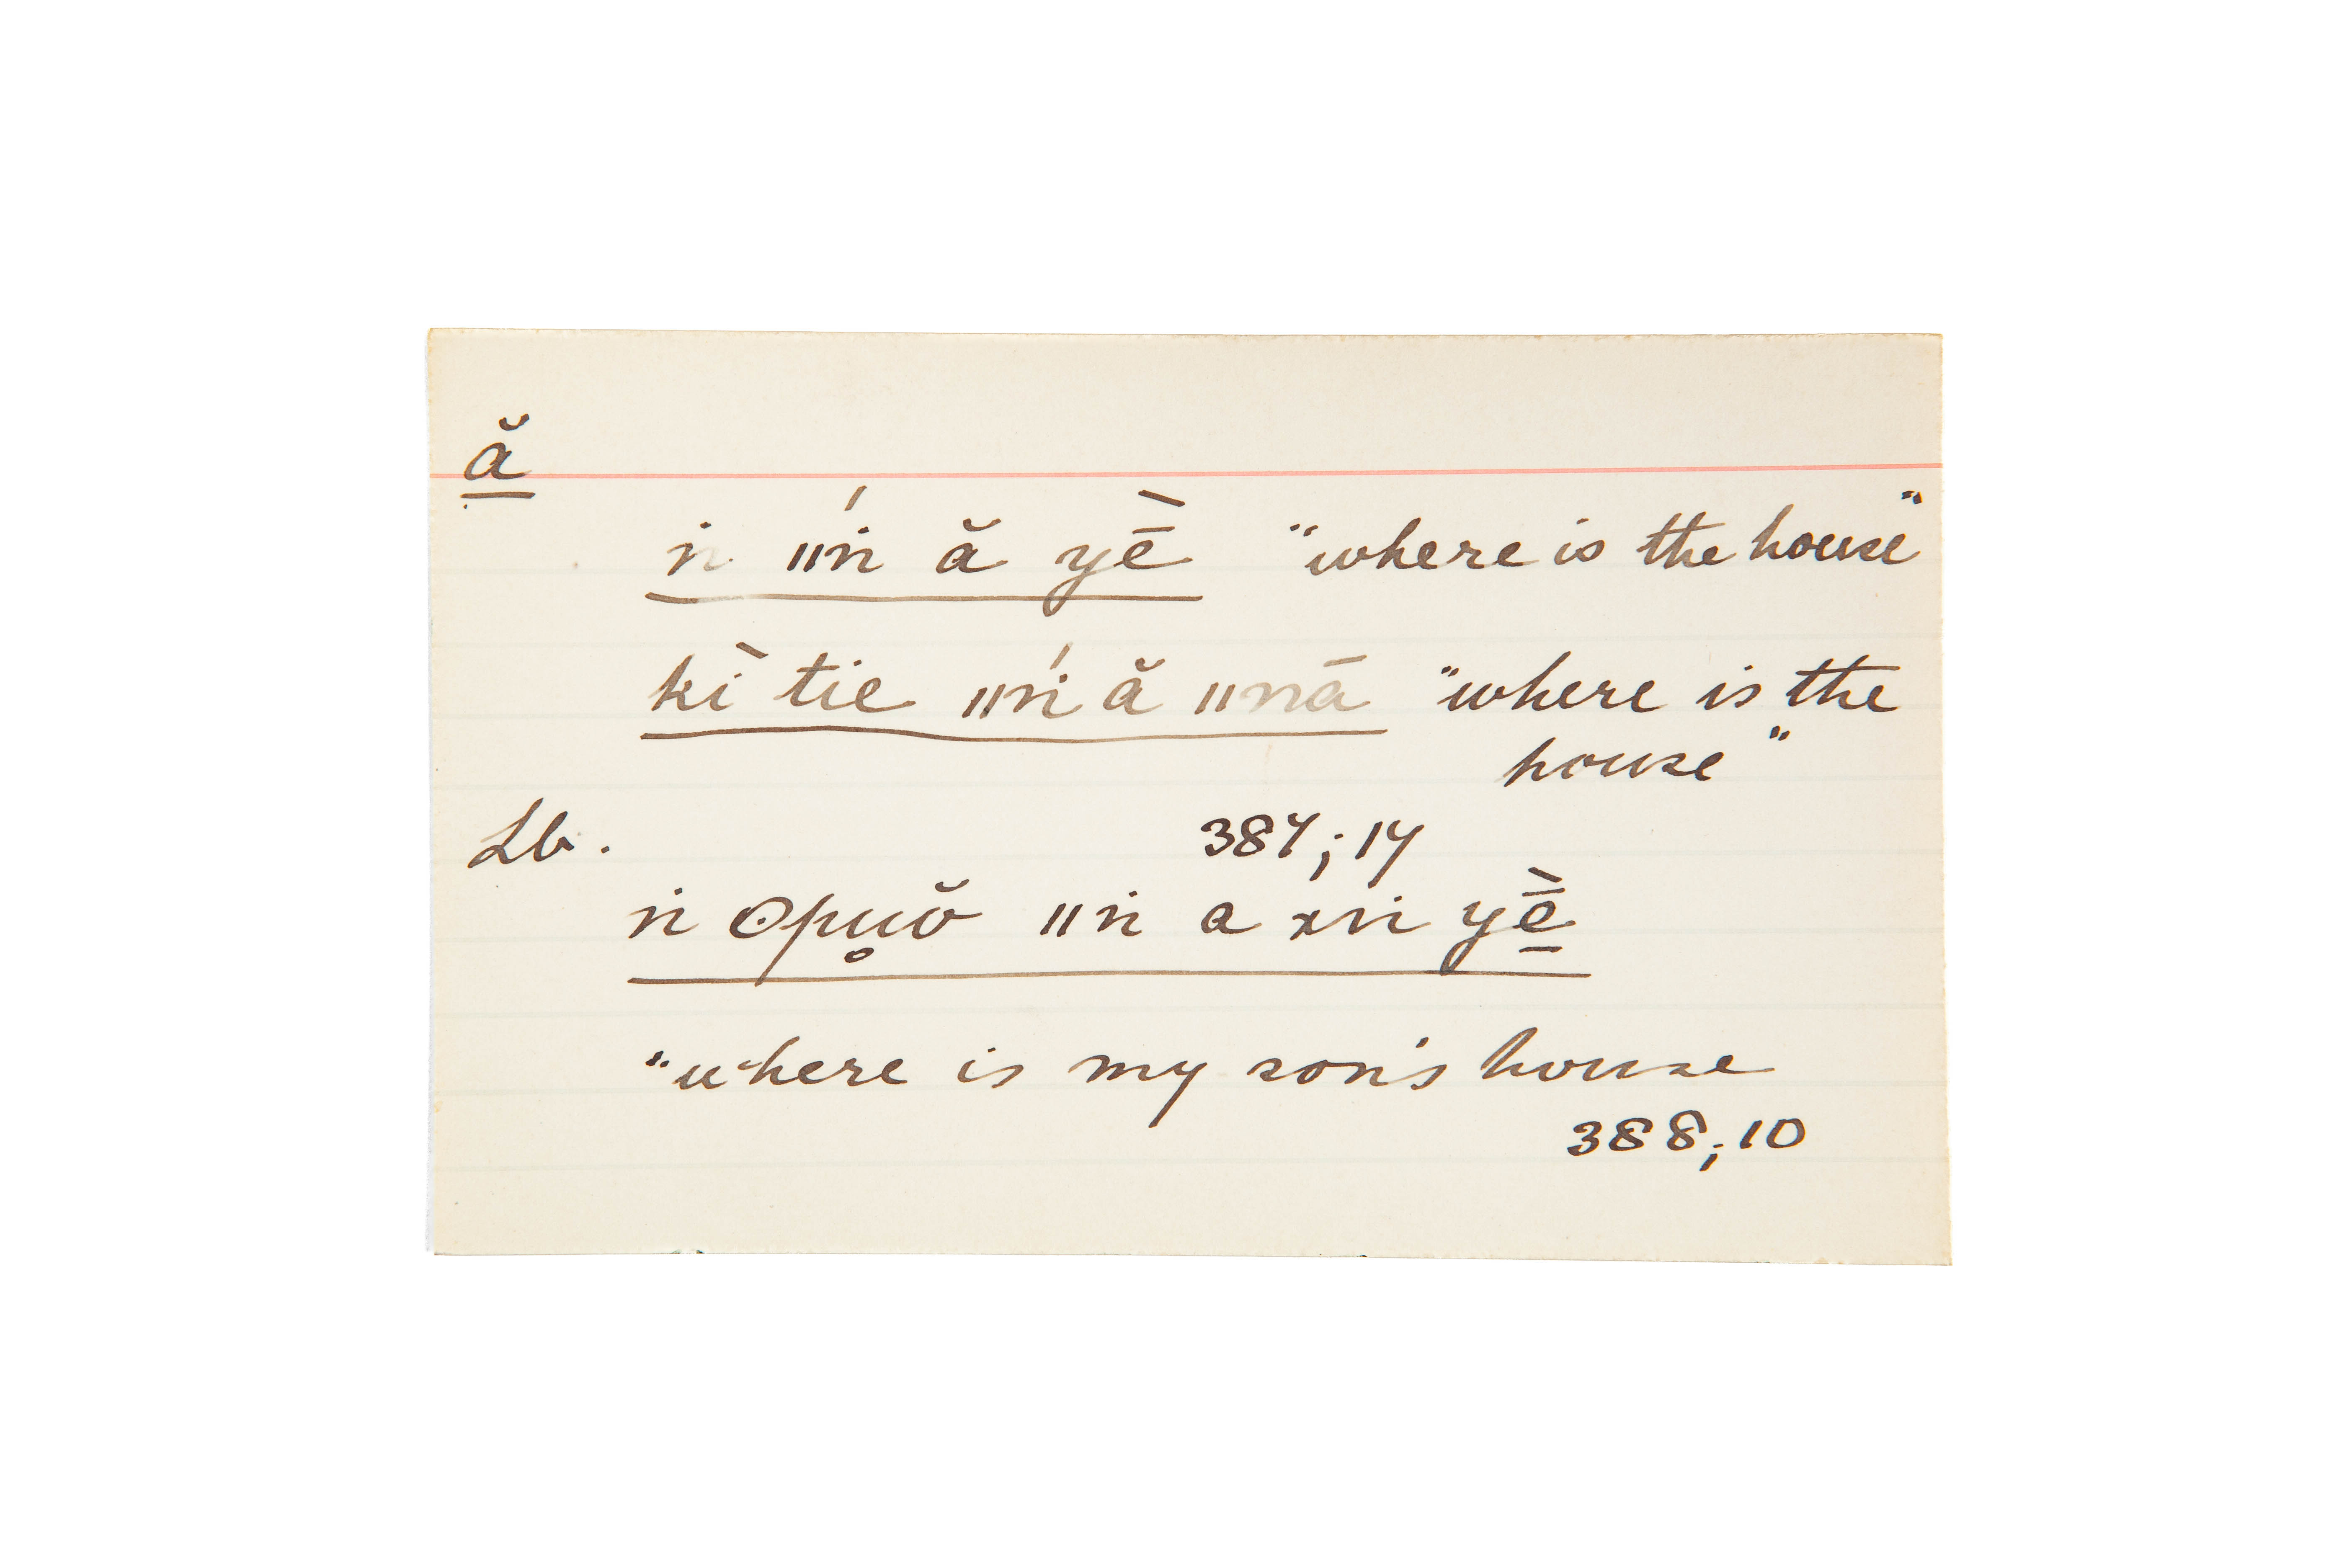 ă
ṅ ǁṅ́ ă yḕ "where is the house"
kì tie ǁṅ́ ă ǁnā "where is the
house"
Lb. 387; 17
ṅ ʘpu̥ŏ ǁṅ a xṅ yḕ̱
"where is my son's house
388; 10